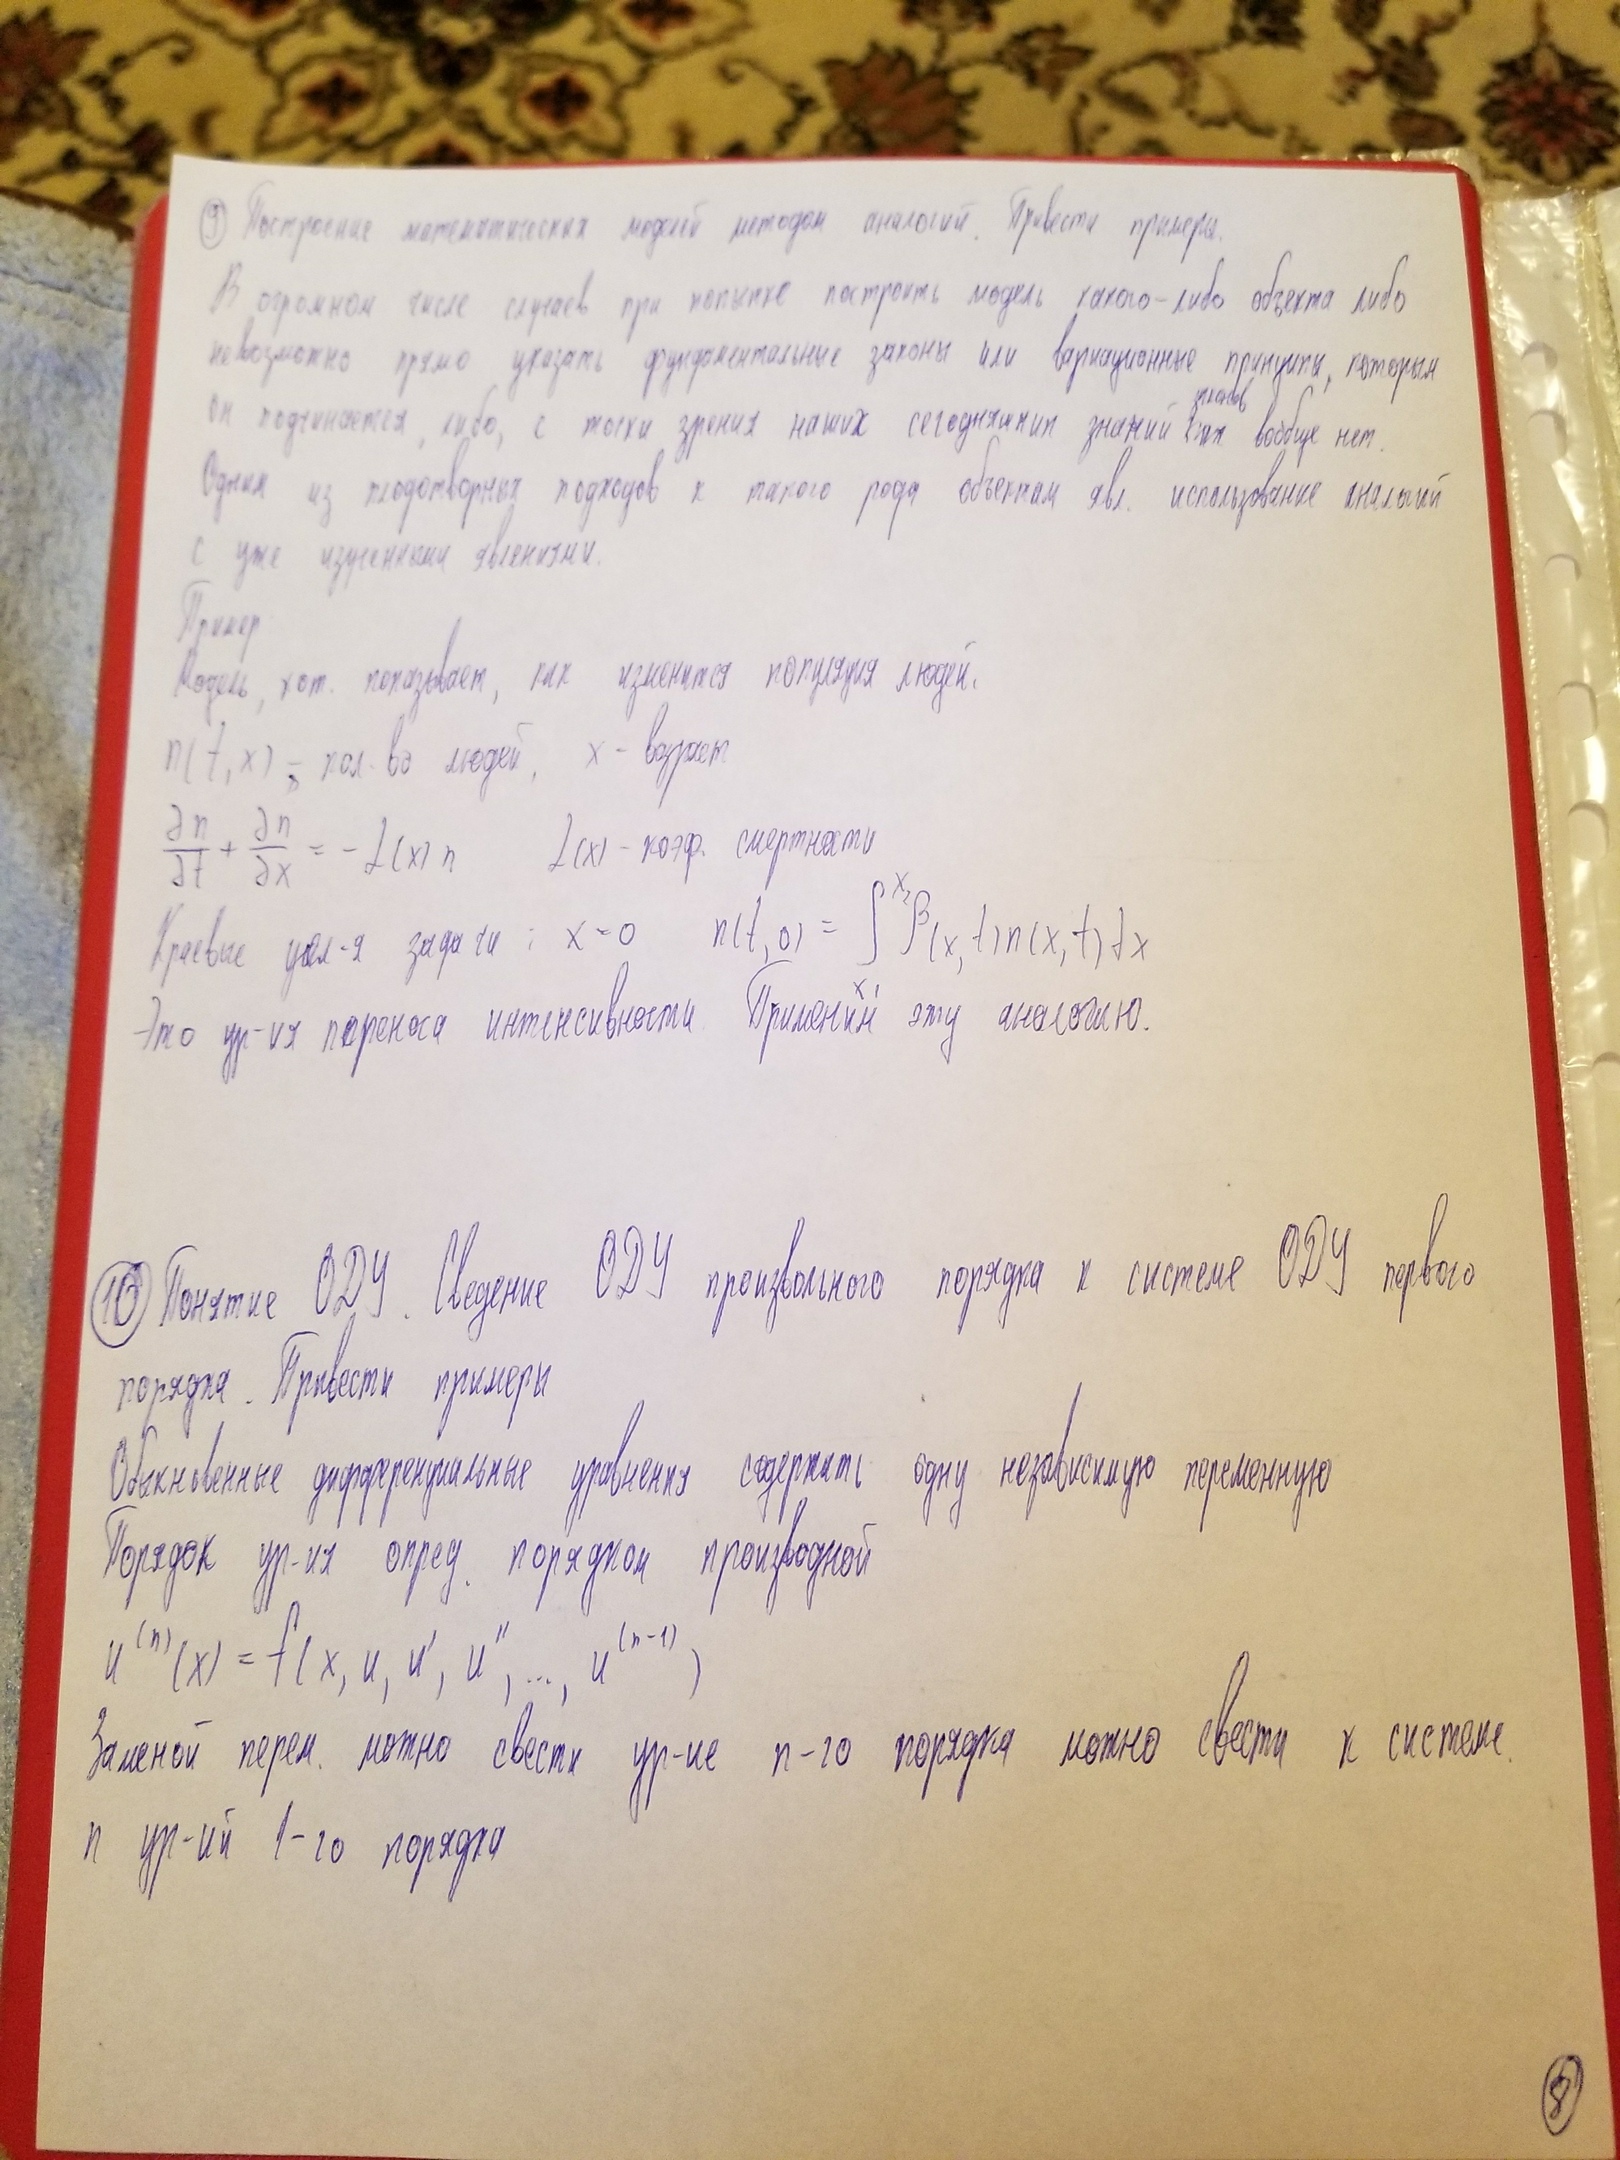 9 Построение математических моделей методом аналогий. Привести примеры.
В огромном числе случаев при попытке построить модель какого-либо объекта либо
невозможно прямо указать фундаментальные законы или вариационные принципы, которым
он подчиняется, либо, с точки зрения наших сегодняшних знаний законов вообще нет.
Одним из плодотворных подходов к такого рода объектам явл. использование аналогий
с уже изученными явлениями.
Пример
Модель, кот. показывает, как изменится популяция людей.
n(t,x) - кол-во людей, x - возраст
∂n/∂t + ∂n/∂x = -L(x) n    L(x) - коэф. смертности
Краевые усл-я задачи: x=0    n(t,0) = ∫_{x₁}^{x₂} β(x,t)n(x,t)dx
Это ур-ия переноса интенсивности. Применим эту аналогию.
10 Понятие ОДУ. Сведение ОДУ произвольного порядка к системе ОДУ первого
порядка. Привести примеры
Обыкновенные дифференциальные уравнения содержать одну независимую переменную
Порядок ур-ия опред. порядком производной
u^(n)(x) = f(x, u, u', u'', ..., u^(n-1))
Заменой перем. можно свести ур-ие n-го порядка можно свести к системе.
n ур-ий 1-го порядка
8